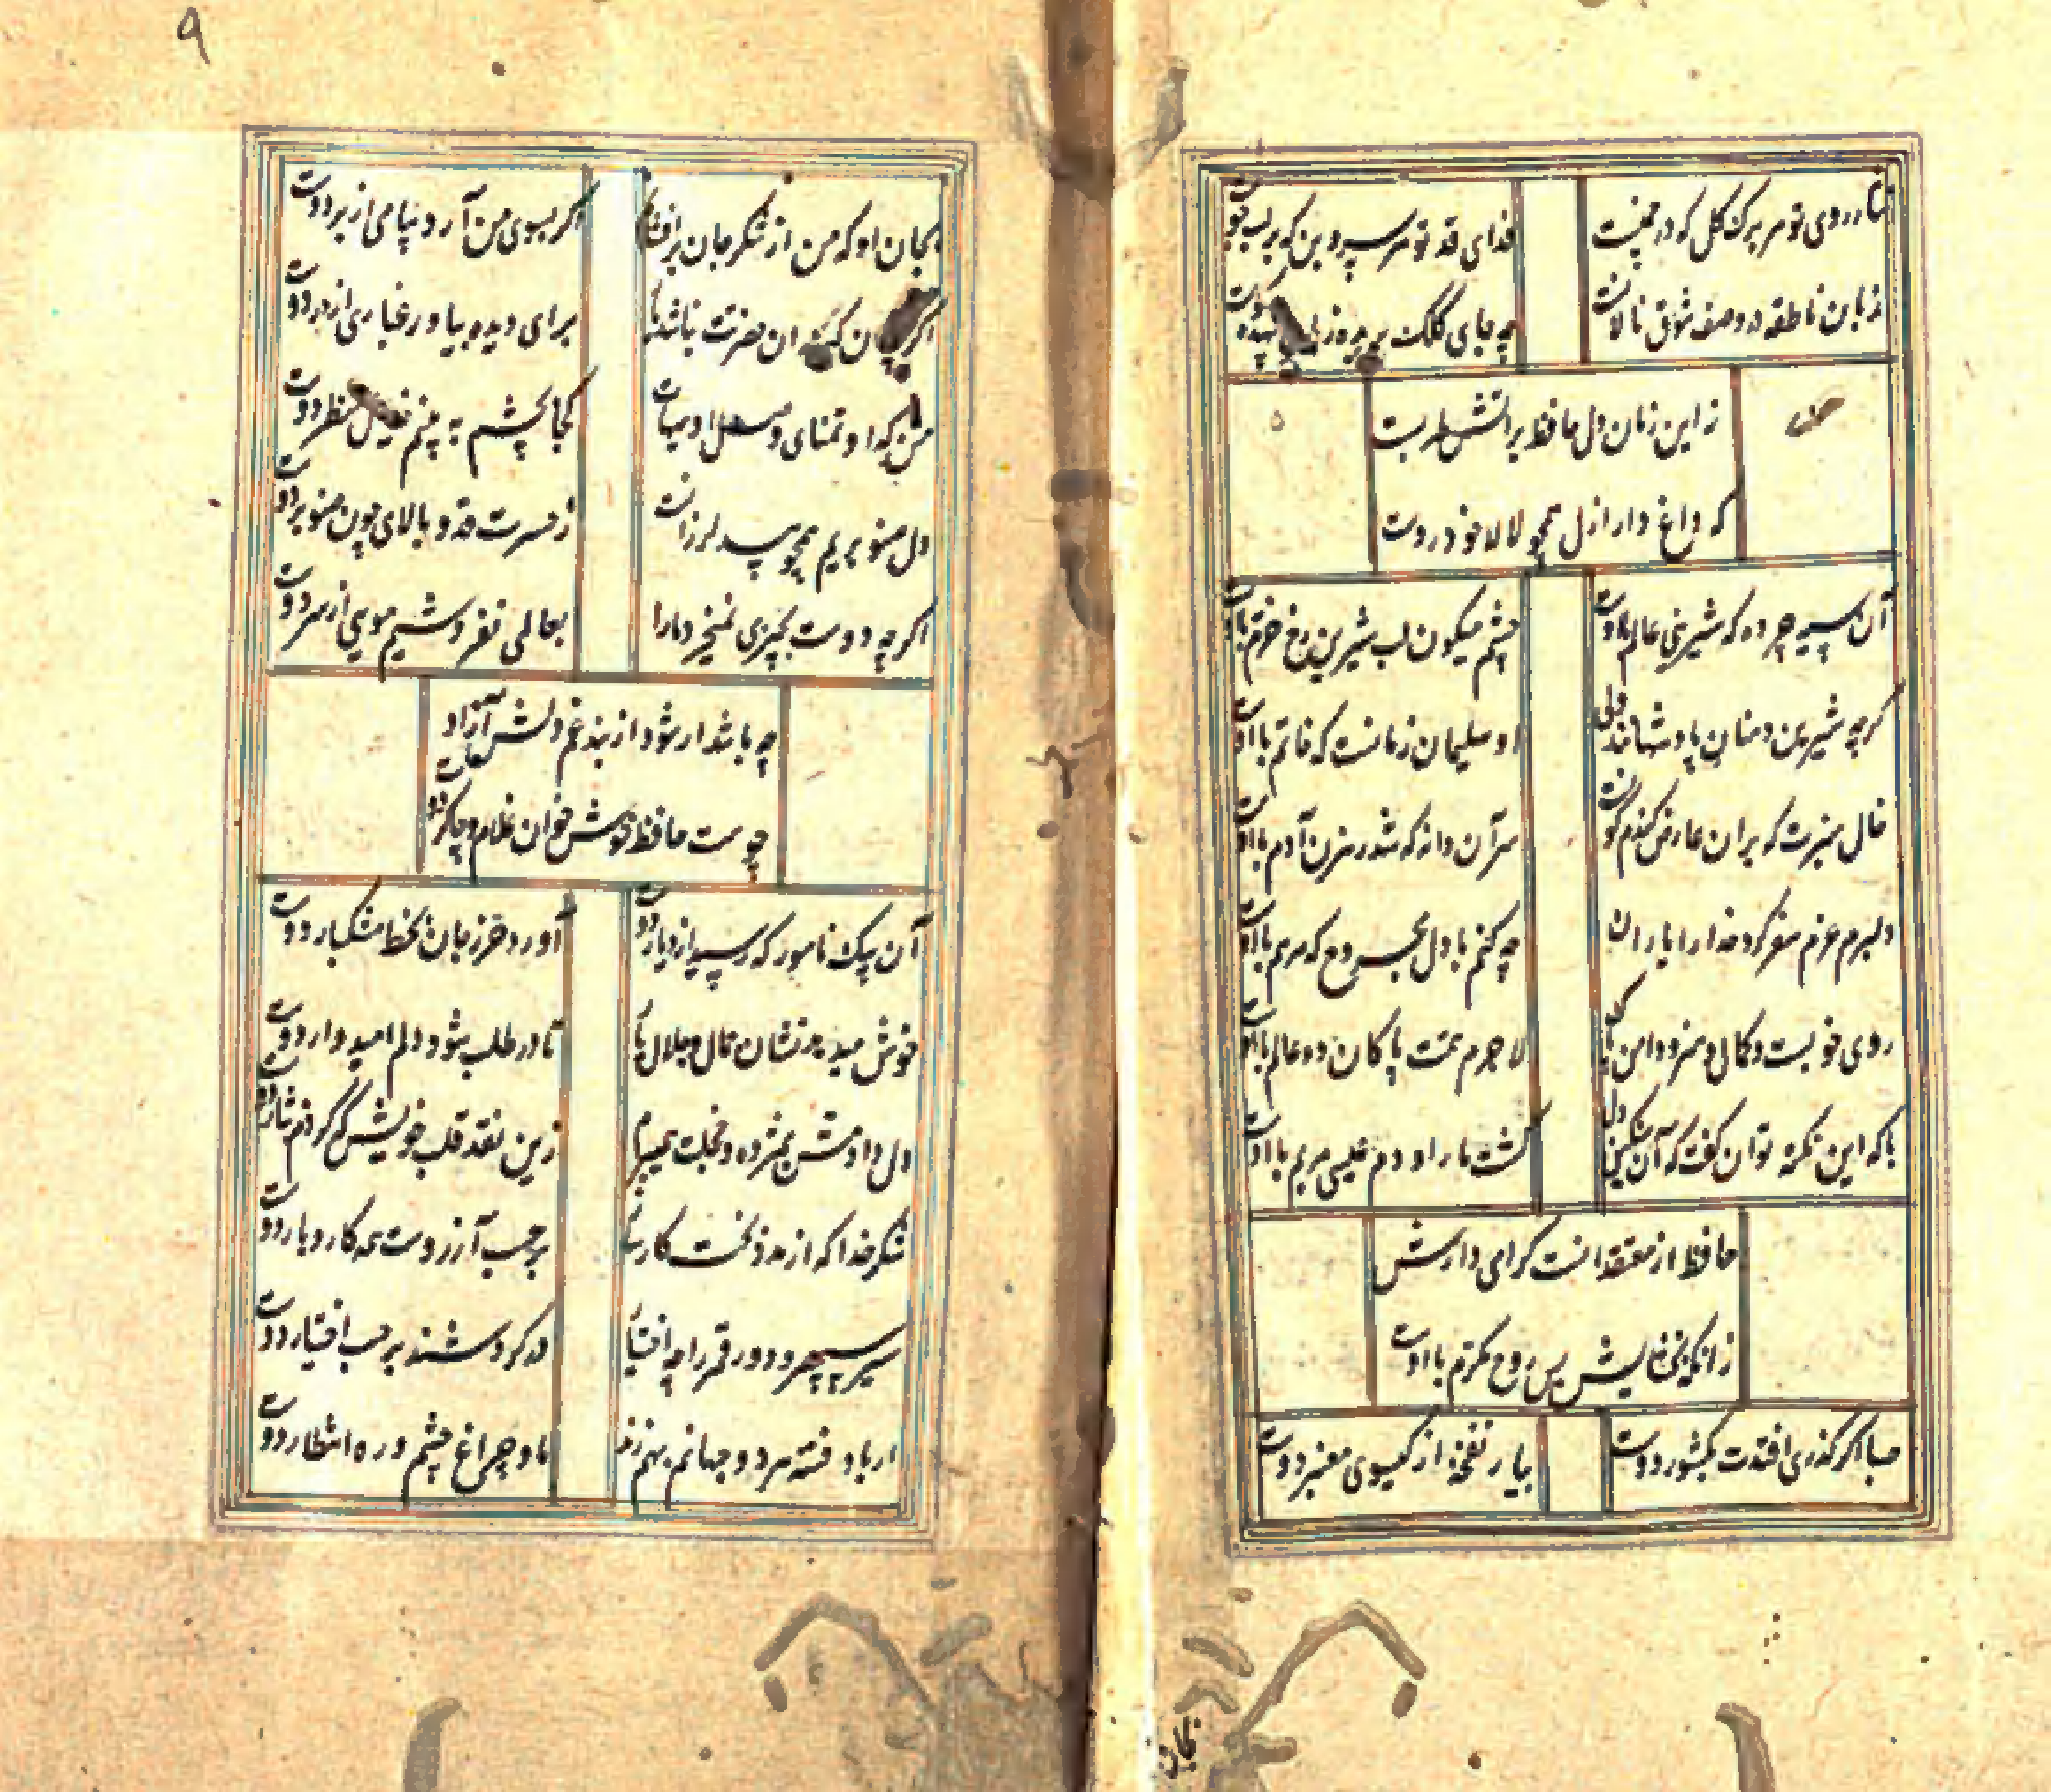 نثار روی تو هر برک کل که در چمنست
فدای قد تو هر سروبن که بر لب جوست
زبان ناطقه در وصف شوق نالانست
چه جای کلک بریده زبان بیهده کوست
نه این زمان دل حافظ بر آتش طربست
که داغ دار ازل همچو لاله خودروست
آن سیه چرده که شیرینی عالم با اوست
چشم میکون لب شیرین رخ خرم با اوست
کرچه شیرین دهنان پادشهانند ولی
او سلیمان زمانست که خاتم با اوست
خال سبزت که بران عارض کندم کونست
سر آن دانه که شد رهزن آدم با اوست
دلبرم عزم سفر کرد خدا را یاران
چه کنم با دل مجروح که مرهم با اوست
روی خوبست و کمال و هنر و دامن پاک
لاجرم همت پاکان دو عالم با اوست
با که این نکته توان کفت که آن سنکین دل
کشت ما را و دم عیسی مریم با اوست
حافظ از معتقدانست کرامی دارش
زانکه بخشایش بس روح مکرم با اوست
صبا اکر کذری افتدت بکشور دوست
بیار نفخه از کیسوی معنبر دوست
بجان او که من از شکر جان برافشانم
اکر بسوی من آرد پیامی از بر دوست
اکر چنان که در ان حضرت نباشد بار
برای دیده بیاور غباری از در دوست
من کدا و تمنای وصل او هیهات
کجا بچشم به بینم خیال منظر دوست
دل صنوبریم همچو بید لرزانست
ز حسرت قد و بالای چون صنوبر دوست
اکرچه دوست بچیزی نمیخرد ما را
بعالمی نفروشیم مویی از سر دوست
چه باشد ار شود از بند غم دلش آزاد
چو هست حافظ خوش خوان غلام و چاکر دوست
آن پیک نامور که رسید از دیار دوست
آورد حرز جان ز خط مشکبار دوست
خوش میدهد نشان جمال و جلال یار
تا در طلب شود دلم امیدوار دوست
دل دادمش بمژده و خجلت همی برم
زین نقد قلب خویش که کردم نثار دوست
شکر خدا که از مدد بخت کارساز
بر حسب آرزوست همه کار و بار دوست
سیر سپهر و دور قمر را چه اختیار
در کردشند بر حسب اختیار دوست
ار باد فتنه هر دو جهانم بهم زند
ما و چراغ چشم و ره انتظار دوست
بجان
۹